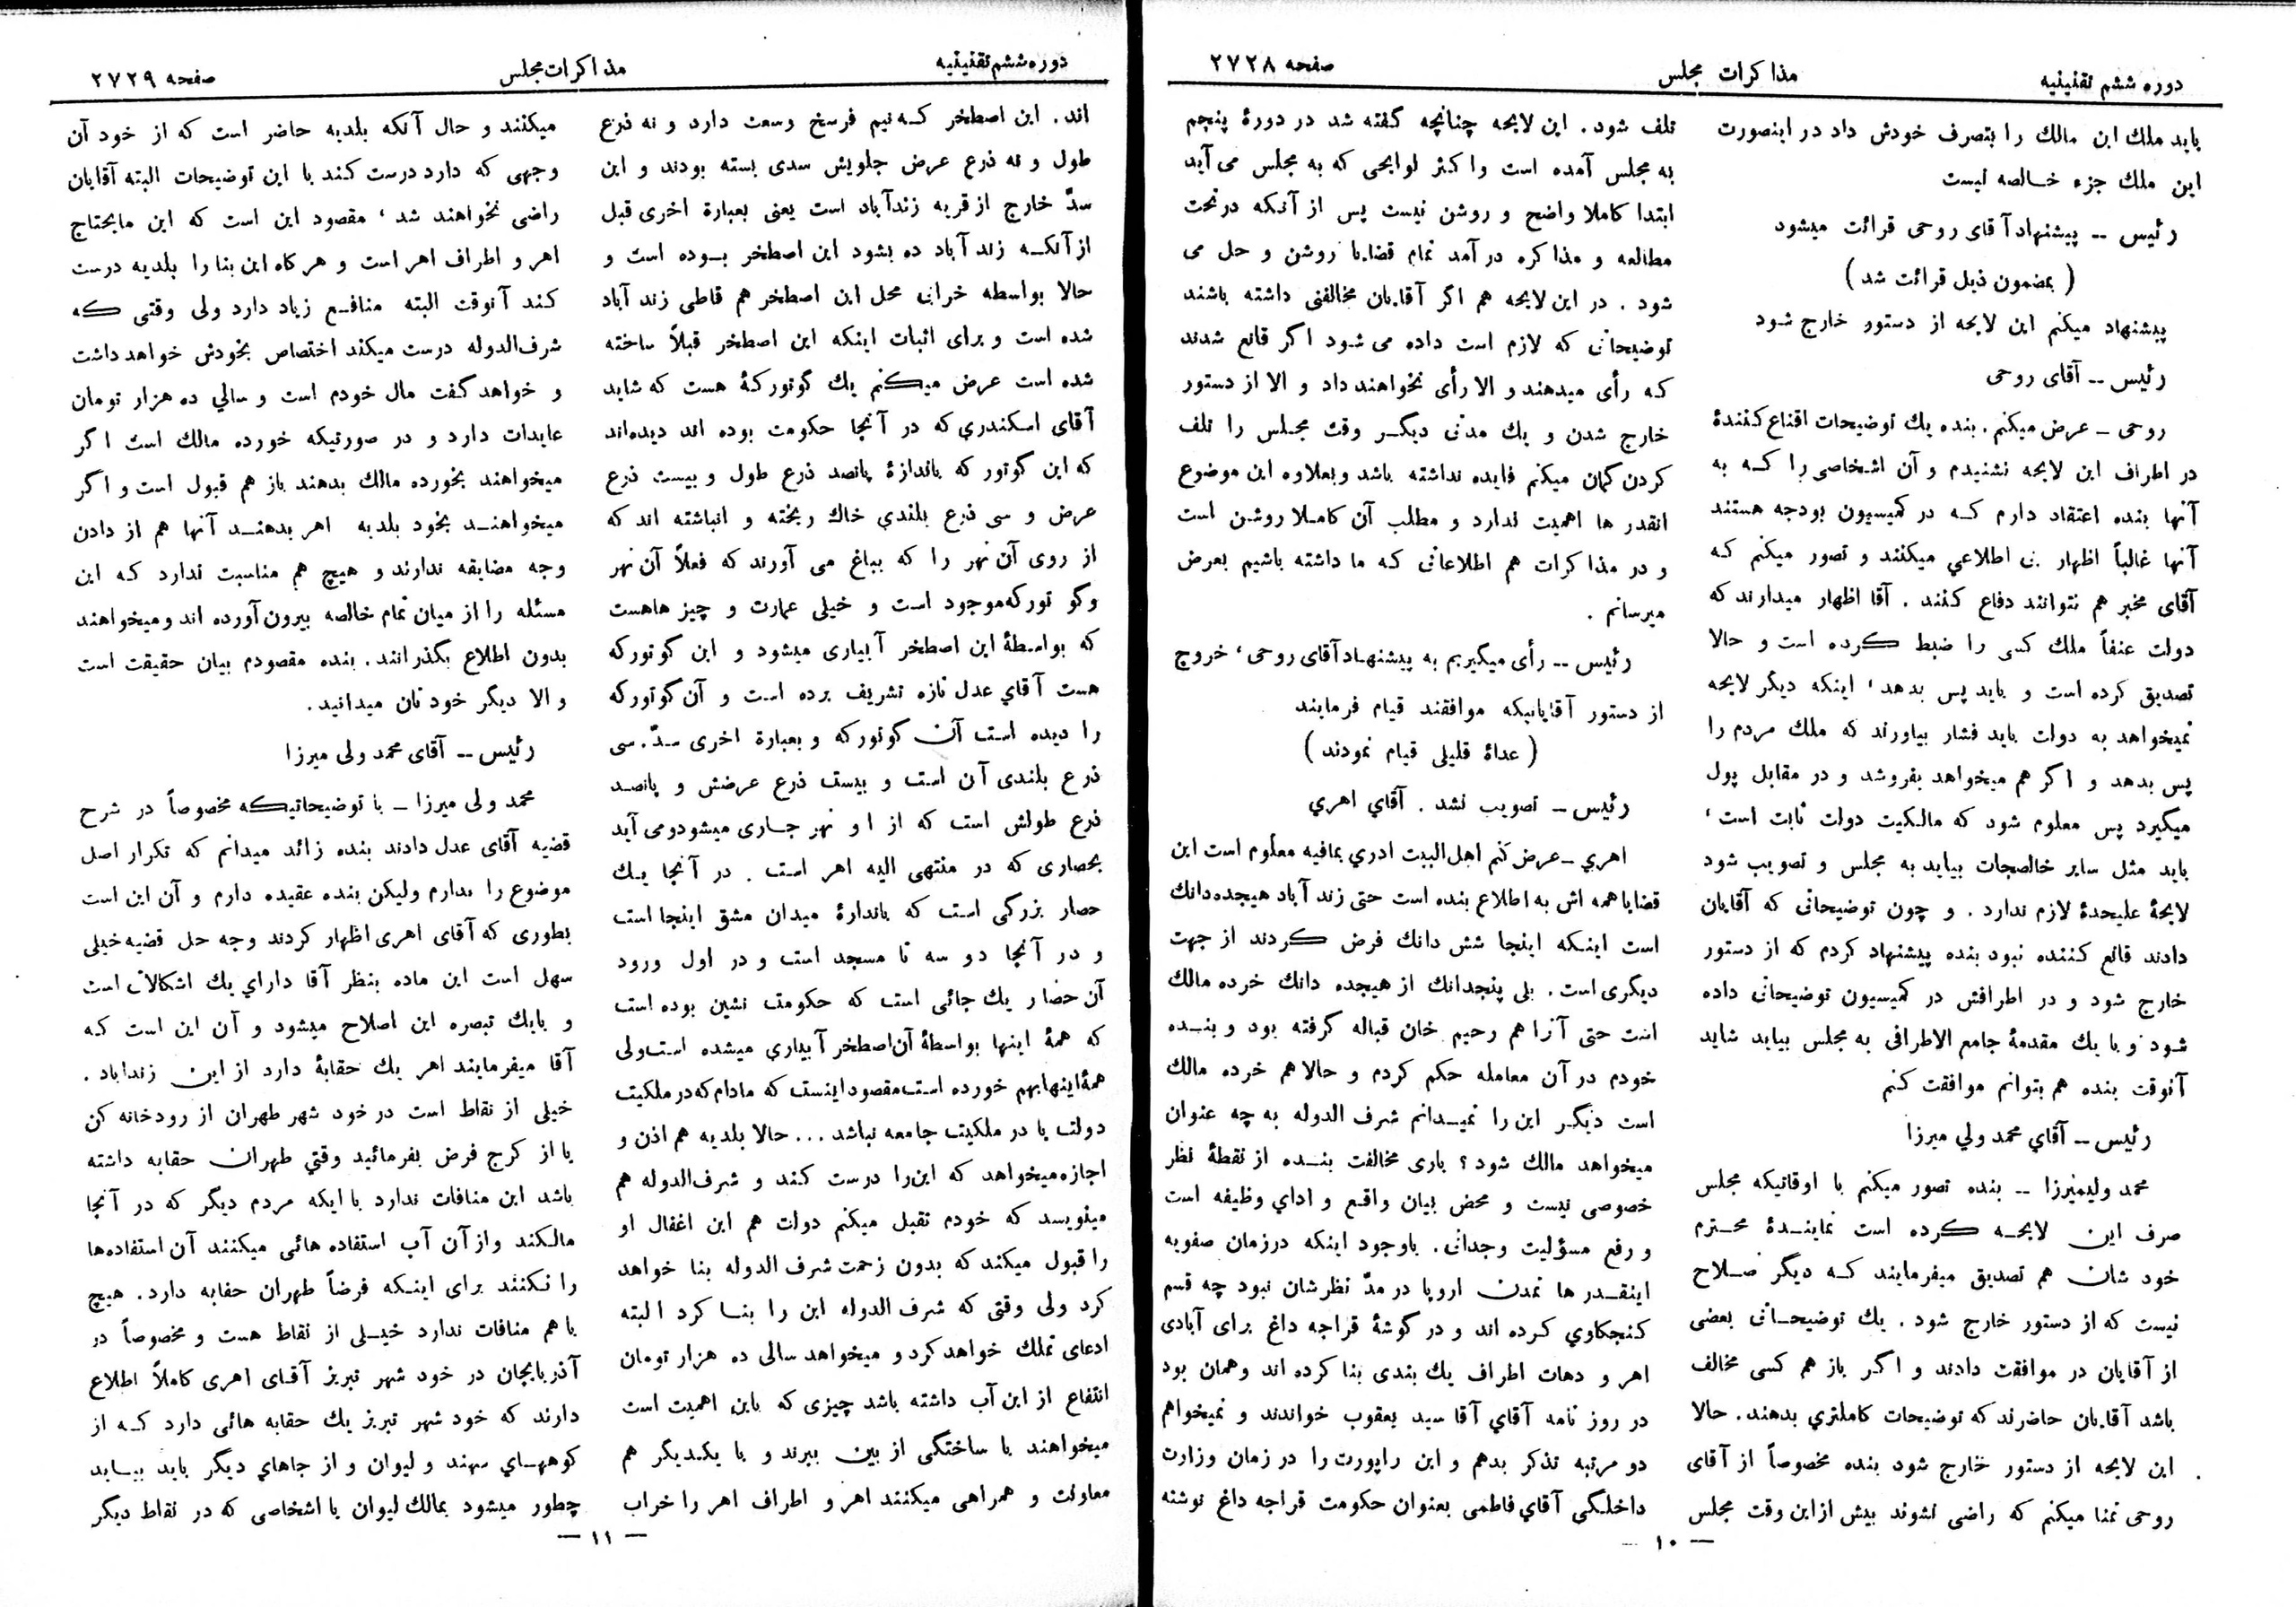 دوره ششم تقنینیه
مذاکرات مجلس
صفحه ۲۷۲۸
باید ملك این مالك را بتصرف خودش داد در اینصورت
این ملك جزء خالصه نیست
رئیس -- پیشنهاد آقای روحی قرائت میشود
( بمضمون ذیل قرائت شد )
پیشنهاد میکنم این لایحه از دستور خارج شود
رئیس -- آقای روحی
روحی - عرض میکنم . بنده یك توضیحات اقناع کنندۀ
در اطراف این لایحه نشنیدم و آن اشخاصی را که به
آنها بنده اعتقاد دارم که در کمیسیون بودجه هستند
آنها غالباً اظهار بی اطلاعی میکنند و تصور میکنم که
آقای مخبر هم نتوانند دفاع کنند . آقا اظهار میدارند که
دولت عنفاً ملك کسی را ضبط کرده است و حالا
تصدیق کرده است و باید پس بدهد ، اینکه دیگر لایحه
نمیخواهد به دولت باید فشار بیاورند که ملك مردم را
پس بدهد و اگر هم میخواهد بفروشد و در مقابل پول
میگیرد پس معلوم شود که مالکیت دولت ثابت است ،
باید مثل سایر خالصجات بیاید به مجلس و تصویب شود
لایحۀ علیحدۀ لازم ندارد . و چون توضیحاتی که آقایان
دادند قانع کننده نبود بنده پیشنهاد کردم که از دستور
خارج شود و در اطرافش در کمیسیون توضیحاتی داده
شود و با یك مقدمۀ جامع الاطرافی به مجلس بیاید شاید
آنوقت بنده هم بتوانم موافقت کنم
رئیس -- آقاي محمد ولي میرزا
محمد ولیمیرزا -- بنده تصور میکنم با اوقاتیکه مجلس
صرف این لایحه کرده است نمایندۀ محترم
خود شان هم تصدیق میفرمایند که دیگر صلاح
نیست که از دستور خارج شود . یك توضیحاتی بعضی
از آقایان در موافقت دادند و اگر باز هم کسی مخالف
باشد آقایان حاضرند که توضیحات کاملتري بدهند . حالا
این لایحه از دستور خارج شود بنده مخصوصاً از آقای
روحی تمنا میکنم که راضی نشوند بیش از این وقت مجلس
تلف شود . این لایحه چنانچه گفته شد در دورۀ پنجم
به مجلس آمده است و اکثر لوایحی که به مجلس می آید
ابتدا کاملا واضح و روشن نیست پس از آنکه در تحت
مطالعه و مذاکره در آمد تمام قضایا روشن و حل می
شود . در این لایحه هم اگر آقایان مخالفتی داشته باشند
توضیحاتی که لازم است داده می شود اگر قانع شدند
که رأی میدهند و الا رأی نخواهند داد و الا از دستور
خارج شدن و یك مدتی دیگر وقت مجلس را تلف
کردن گمان میکنم فایده نداشته باشد و بعلاوه این موضوع
انقدر ها اهمیت ندارد و مطلب آن کاملا روشن است
و در مذاکرات هم اطلاعاتی که ما داشته باشیم بعرض
میرسانم .
رئیس -- رأی میگیریم به پیشنهاد آقای روحی ، خروج
از دستور آقایانیکه موافقند قیام فرمایند
( عدۀ قلیلی قیام نمودند )
رئیس -- تصویب نشد . آقاي اهري
اهري - عرض کنم اهل البیت ادري بمافیه معلوم است این
قضایا همه اش به اطلاع بنده است حتی زند آباد هیجده دانك
است اینکه اینجا شش دانك فرض کردند از جهت
دیگری است . بلی پنجدانك از هیجده دانك خرده مالك
است حتی آنرا هم رحیم خان قباله گرفته بود و بنده
خودم در آن معامله حکم کردم و حالا هم خرده مالك
است دیگر این را نمیدانم شرف الدوله به چه عنوان
میخواهد مالك شود ؟ باری مخالفت بنده از نقطۀ نظر
خصوصی نیست و محض بیان واقع و اداي وظیفه است
و رفع مسؤلیت وجدانی . باوجود اینکه در زمان صفویه
اینقدر ها تمدن اروپا در مدّ نظرشان نبود چه قسم
کنجکاوي کرده اند و در گوشۀ قراجه داغ برای آبادی
اهر و دهات اطراف یك بندی بنا کرده اند و همان بود
در روز نامه آقاي آقا سید یعقوب خواندند و نمیخواهم
دو مرتبه تذکر بدهم و این راپورت را در زمان وزارت
داخلگی آقاي فاطمی بعنوان حکومت قراجه داغ نوشته
— ۱۰ —
دوره ششم تقنینیه
مذاکرات مجلس
صفحه ۲۷۲۹
اند . این اصطخر که نیم فرسخ وسعت دارد و نه ذرع
طول و نه ذرع عرض جلویش سدی بسته بودند و این
سدّ خارج از قریه زندآباد است یعنی بعبارة اخری قبل
از آنکه زند آباد ده بشود این اصطخر بوده است و
حالا بواسطه خرابی محل این اصطخر هم قاطی زند آباد
شده است و برای اثبات اینکه این اصطخر قبلاً ساخته
شده است عرض میکنم یك گوتورکۀ هست که شاید
آقای اسکندري که در آنجا حکومت بوده اند دیده‌اند
که این گوتور که باندازۀ پانصد ذرع طول و بیست ذرع
عرض و سی ذرع بلندي خاك ریخته و انباشته اند که
از روی آن نهر را که بباغ می آورند که فعلاً آن نهر
و گو تورکه موجود است و خیلی عمارت و چیز هاهست
که بواسطۀ این اصطخر آبیاری میشود و این گوتورکه
هست آقاي عدل تازه تشریف برده است و آن گوتورکه
را دیده است آن گوتورکه و بعبارة اخری سدّ . سی
ذرع بلندی آن است و بیست ذرع عرضش و پانصد
ذرع طولش است که از او نهر جاری میشود و می آید
بحصاری که در منتهی الیه اهر است . در آنجا یك
حصار بزرگی است که باندارۀ میدان مشق اینجا است
و در آنجا دو سه تا مسجد است و در اول ورود
آن حصار یك جائی است که حکومت نشین بوده است
که همۀ اینها بواسطۀ آن اصطخر آبیاري میشده است ولی
همۀ اینها بهم خورده است مقصود اینست که مادام که در ملکیت
دولت یا در ملکیت جامعه نباشد ... حالا بلدیه هم اذن و
اجازه میخواهد که این را درست کنند و شرف الدوله هم
مینویسد که خودم تقبل میکنم دولت هم این اغفال او
را قبول میکند که بدون زحمت شرف الدوله بنا خواهد
کرد ولی وقتی که شرف الدوله این را بنا کرد البته
ادعای تملك خواهد کرد و میخواهد سالی ده هزار تومان
انتفاع از این آب داشته باشد چیزی که باین اهمیت است
میخواهند با ساختگی از بین ببرند و با یکدیگر هم
معاونت و همراهی میکنند اهر و اطراف اهر را خراب
میکنند و حال آنکه بلدیه حاضر است که از خود آن
وجهی که دارد درست کند با این توضیحات البته آقایان
راضی نخواهند شد ، مقصود این است که این مایحتاج
اهر و اطراف اهر است و هر گاه این بنا را بلدیه درست
کند آنوقت البته منافع زیاد دارد ولی وقتی که
شرف الدوله درست میکند اختصاص بخودش خواهد داشت
و خواهد گفت مال خودم است و سالي ده هزار تومان
عایدات دارد و در صورتیکه خورده مالك است اگر
میخواهند بخورده مالك بدهند باز هم قبول است و اگر
میخواهند بخود بلدیه اهر بدهند آنها هم از دادن
وجه مضایقه ندارند و هیچ هم مناسبت ندارد که این
مسئله را از میان تمام خالصه بیرون آورده اند و میخواهند
بدون اطلاع بگذرانند . بنده مقصودم بیان حقیقت است
و الا دیگر خود تان میدانید .
رئیس -- آقای محمد ولی میرزا
محمد ولی میرزا - با توضیحاتیکه مخصوصاً در شرح
قضیه آقای عدل دادند بنده زائد میدانم که تکرار اصل
موضوع را بدارم ولیکن بنده عقیده دارم و آن این است
بطوری که آقای اهری اظهار کردند وجه حل قضیه خیلی
سهل است این ماده بنظر آقا داراي یك اشکالات است
و بایك تبصره این اصلاح میشود و آن این است که
آقا میفرمایند اهر یك حقابۀ دارد از این زنداباد .
خیلی از نقاط است در خود شهر طهران از رودخانه کن
یا از کرج فرض بفرمائید وقتي طهران حقابه داشته
باشد این منافات ندارد با ایکه مردم دیگر که در آنجا
مالکند و از آن آب استفاده هائی میکنند آن استفاده‌ها
را نکنند برای اینکه فرضاً طهران حقابه دارد . هیچ
با هم منافات ندارد خیلی از نقاط هست و مخصوصاً در
آذربایجان در خود شهر تبریز آقای اهری کاملاً اطلاع
دارند که خود شهر تبریز یك حقابه هائی دارد که از
کوههاي سهند و لیوان و از جاهاي دیگر باید بیاید
چطور میشود بمالك لیوان یا اشخاصی که در نقاط دیگر
— ۱۱ —